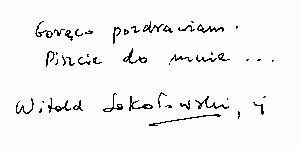 Gorąco pozdrawiam.
Piszcie do mnie ...
Witold Sokołowski,